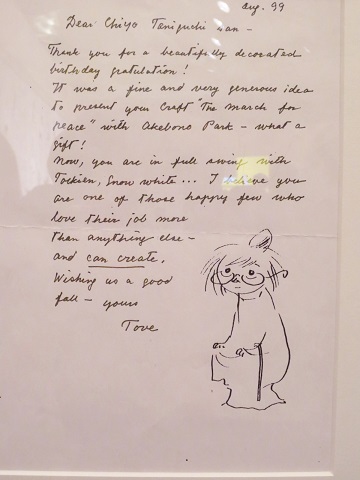 Aug. 99
Dear Chiyo Taniguchi san -
Thank you for a beautifully decorated
birthday gratulation!
It was a fine and very generous idea
to present your Craft "The March for
peace" with Akebono Park - what a
gift!
Now, you are in full swing with
Tolkien, Snow white... I believe you
are one of those happy few who
love their job more
than anything else -
and can create.
Wishing us a good
fall - yours
Tove